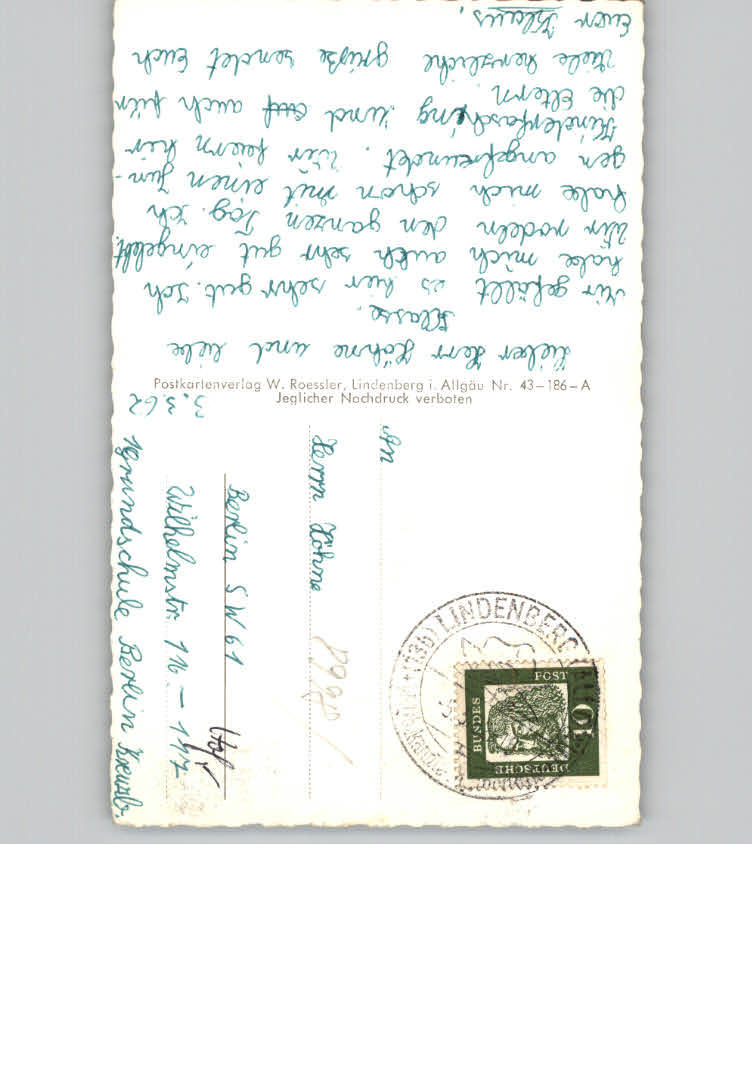 3.3.62
Lieber Herr Höhne und liebe
Klasse.
Mir gefällt es hier sehr gut. Ich
habe mich auch sehr gut eingelebt.
Wir rodeln den ganzen Tag. Ich
habe mich schon mit einen Jun-
gen angefreundet. Wir feiern hir
Kinderfasching und auch für
die Eltern.
Viele herzliche grüße sendet Euch
Euer Klaus.
Postkartenverlag W. Roessler, Lindenberg i. Allgäu Nr. 43–186–A
Jeglicher Nachdruck verboten
An
Herrn Höhne
Berlin SW 61
Wilhelmstr. 116 – 117
Grundschule Berlin Kreuzb.
LINDENBERG
DEUTSCHE
BUNDES
POST
10